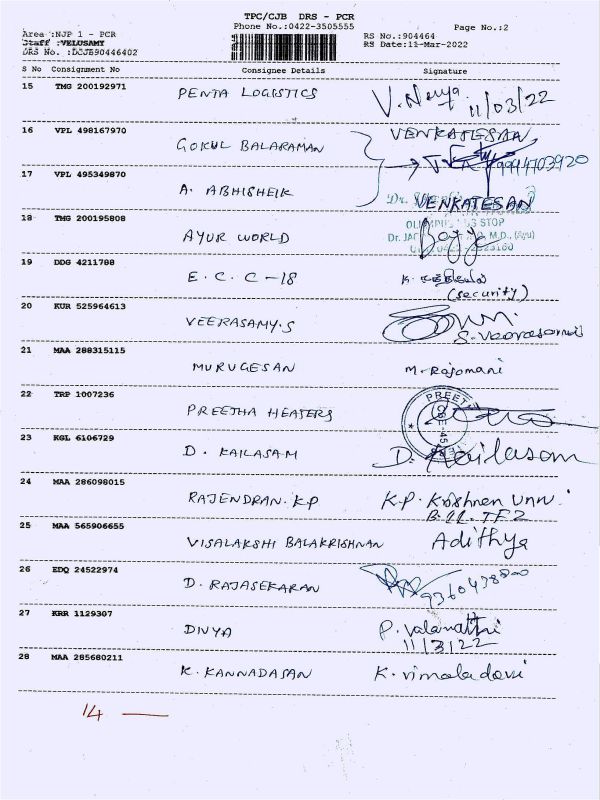 TPC/CJB DRS - PCR
Phone No.:0422-3505555
Page No.:2
Area :NJP 1 - PCR
Staff :VELUSAMY
DRS No. :DCJB90446402
RS No.:904464
RS Date:11-Mar-2022
S No Consignment No Consignee Details Signature
15 TMG 200192971 PENTA LOGISTICS 11/03/22
16 VPL 498167970 GOKUL BALARAMAN VENKATESAN
17 VPL 495349870 A. ABHISHEIK VENKATESAN
18 TMG 200195808 AYUR WORLD
19 DDG 4211788 E.C.C-18
(security)
20 KUR 525964613 VEERASAMY.S
21 MAA 288315115 MURUGESAN M. Rajamani
22 TRP 1007236 PREETHA HEATERS
23 KGL 6106729 D. KAILASAM D. Kailasam
24 MAA 286098015 RAJENDRAN.K.P K.P. Krishnan Unni
25 MAA 565906655 VISALAKSHI BALAKRISHNAN Adithya
26 EDQ 24522974 D. RAJASEKARAN
27 KRR 1129307 DIVYA P. Valarmathi
11/3/22
28 MAA 285680211 K. KANNADASAN K. vimaladevi
14 —